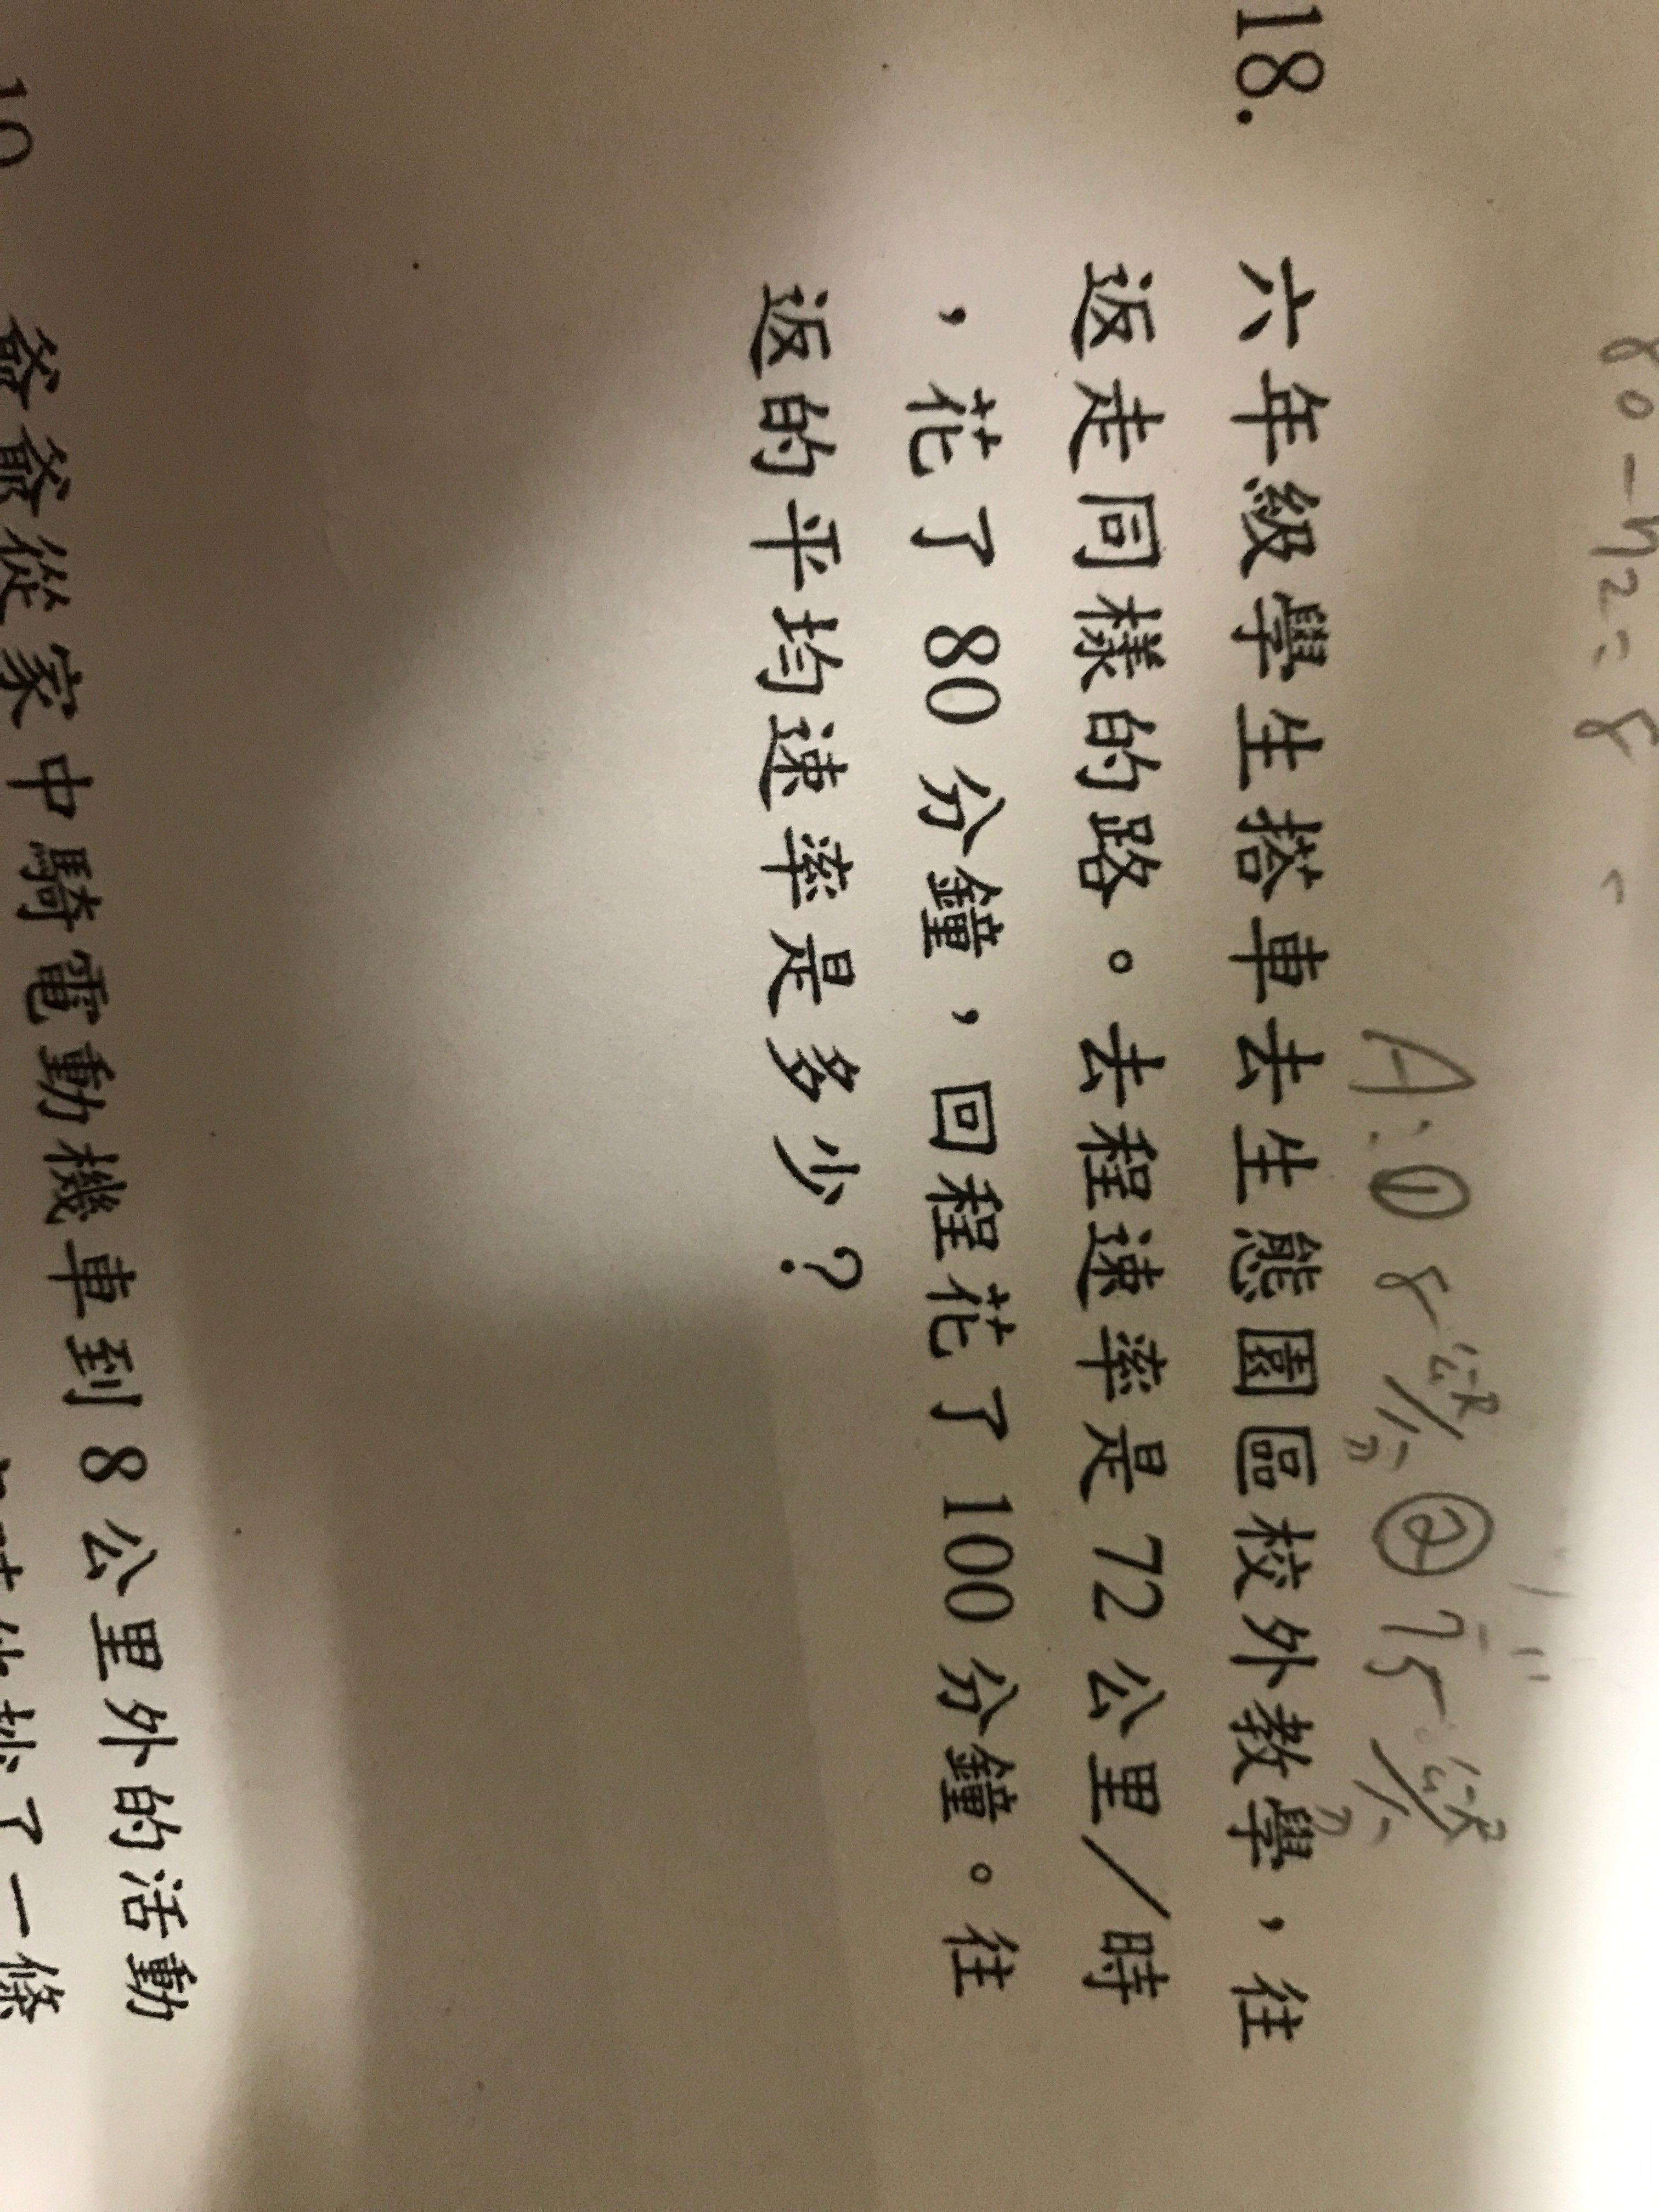 80-72=8
A:①8公里/小時②75公里/小時
18. 六年級學生搭車去生態園區校外教學，往
返走同樣的路。去程速率是72公里／時
，花了80分鐘，回程花了100分鐘。往
返的平均速率是多少？
爺爺從家中騎電動機車到8公里外的活動
了一條